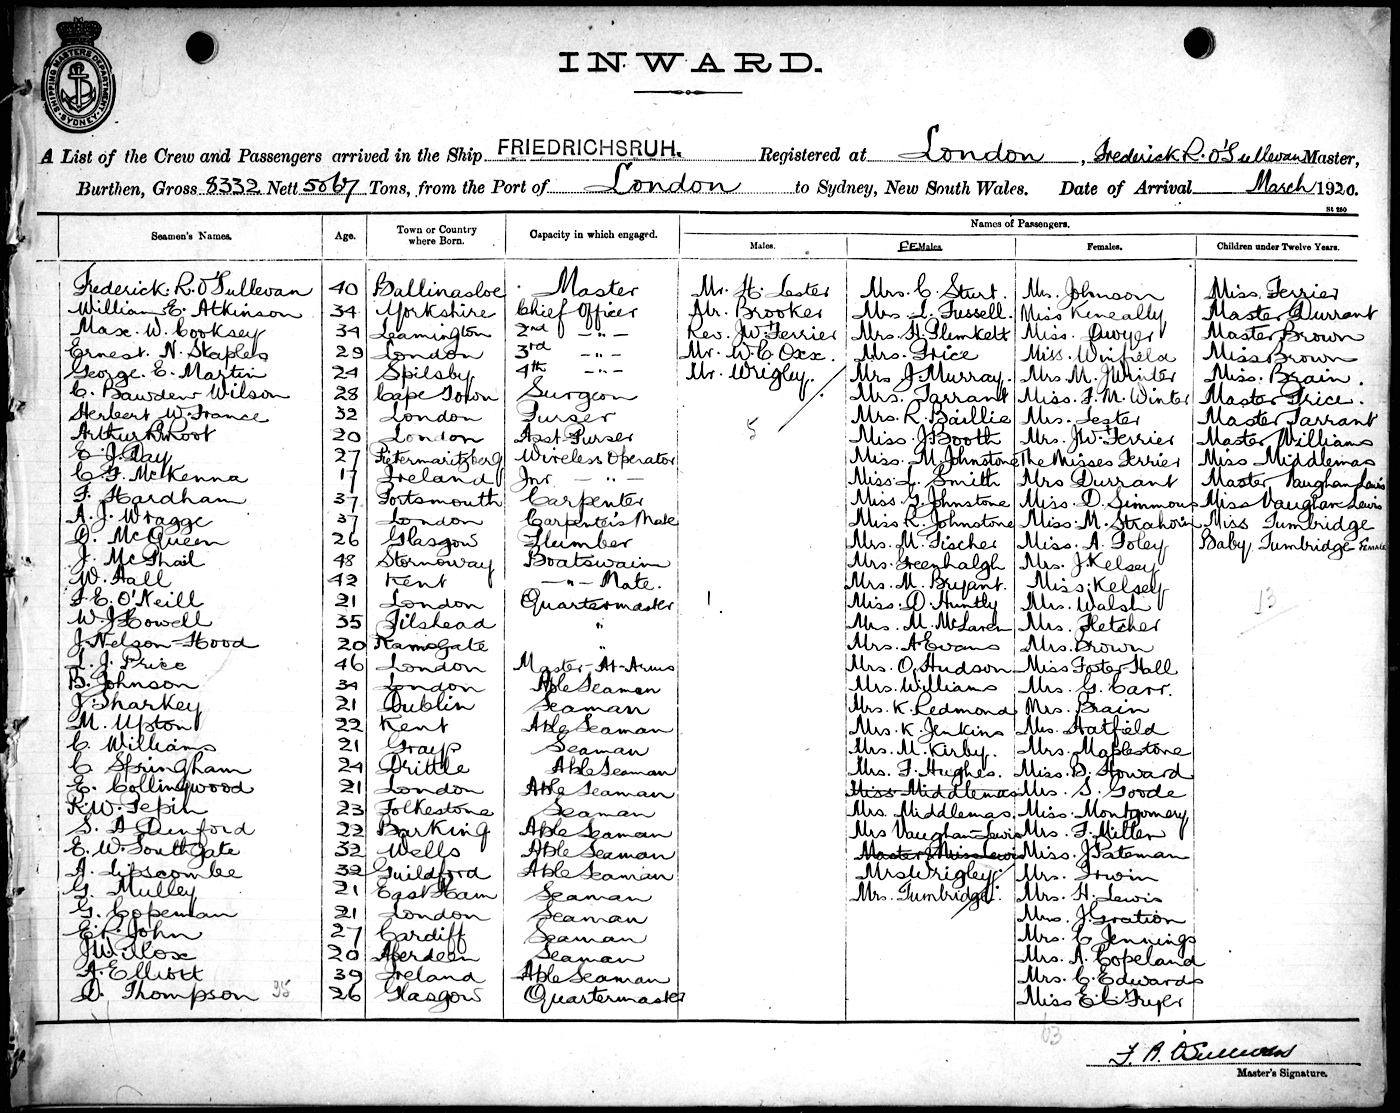 SHIPPING MASTERS DEPARTMENT SYDNEY
INWARD.
A List of the Crew and Passengers arrived in the Ship FRIEDRICHSRUH. Registered at London, Frederick R. O'Sullevan Master,
Burthen, Gross 8332 Nett 5067 Tons, from the Port of London to Sydney, New South Wales. Date of Arrival March 1920.
St 230
Seamen's Names. Age. Town or Country where Born. Capacity in which engaged. Names of Passengers.
Males. FEMales. Females. Children under Twelve Years.
Frederick. R. O'Sullevan 40 Ballinasloe Master Mr. H. Lester Mrs. C. Sturt. Mrs. Johnson Miss. Ferrier
William. E. Atkinson 34 Yorkshire Chief Officer Mr. Brooker Mrs. L. Fussell. Miss Keneally Master Durrant
Max. W. Cooksey 34 Leamington 2nd -"- Rev. J.W. Ferrier Mrs. H. Plunkett Miss. Dwyer Master Brown
Ernest. N. Staples 29 London 3rd -"- Mr. W. C. Oxx. Mrs. Price Miss. Winfield Miss Brown
George. E. Martin 24 Spilsby 4th -"- Mr. Wrigley. Mrs J. Murray. Mrs. M. J Winter Miss. Brain.
C. Bawden Wilson 28 Cape Town Surgeon Mrs. Tarrant Miss. F. M. Winter Master Price.
Herbert W. France 32 London Purser Mrs. R. Baillie Mrs. Lester Master Tarrant
Arthur R Root 20 London Asst. Purser 5 Miss. J Booth Mrs. J.W. Ferrier Master Williams
E J. Day 27 Pietermaritzberg Wireless Operator Miss. M. Johnstone The Misses Ferrier Miss Middlemas
C. F. McKenna 17 Ireland Jnr. -"- Miss. L. Smith Mrs Durrant Master Vaughan Lewis
F. Hardham 37 Portsmouth Carpenter Miss. G. Johnstone Miss. D. Simmons Miss Vaughan Lewis
A. J. Wragge 37 London Carpenters Mate Miss R. Johnstone Miss. M. Strahorn Miss Tumbridge
D. McQueen 26 Glasgow Plumber Mrs. M. Fischer Miss. A. Foley Baby Tumbridge Female
J. McPhail 48 Stornoway Boatswain Mrs. Greenhalgh Mrs. J. Kelsey
W. Hall 42 Kent -"- Mate. Mrs. M. Bryant. Miss. Kelsey
F. E. O'Neill 21 London Quartermaster Miss. D. Huntly Mrs. Walsh 13
W. J Howell 35 Tilshead " Mrs. M. McLaren Mrs. Fletcher
J Nelson-Hood 20 Ramsgate " Mrs. A Evans Mrs. Brown
L. J. Price 46 London Master-At-Arms Mrs. O. Hudson Miss Foster Hall
B. Johnson 34 London Able Seaman Mrs. Williams Mrs. G. Carr.
J. Sharkey 21 Dublin Seaman Mrs. K. Redmond Mrs. Brain
M. Upton 22 Kent Able Seaman Mrs. K. Jenkins Mrs. Hatfield
C. Williams 21 Grays Seaman Mrs. M. Kirby. Mrs. Maplestone
C Springham 24 Drittle Able Seaman Mrs. F. Hughes. Miss. B. Howard
E. Collingwood 21 London Able Seaman Miss Middlemas Mrs. S. Goode
R.W. Pepin 23 Folkestone Seaman Mrs. Middlemas. Miss. Montgomery
S. A Dunford 22 Barking Able Seaman Mrs Vaughan-Lewis Mrs. F. Milten
E. W. Southgate 32 Wells Able Seaman Master & Miss Lewis Miss. J Pateman
A. Lipscombe 32 Guildford Able Seaman Mrs Wrigley. Mrs. Irwin
G. Mulley 21 East Ham Seaman Mrs. Tumbridge. Mrs. H. Lewis
G. Copeman 21 London Seaman Mrs. J Gration
E. R. John 27 Cardiff Seaman Mrs. C Jennings
J Willox 20 Aberdeen Seaman Mrs. A. Copeland
A. Elliott 39 Ireland Able Seaman Mrs. C. Edwards
D. Thompson 35 26 Glasgow Quartermaster Miss E. C Fryer
63
F. R. O'Sullevan
Master's Signature.